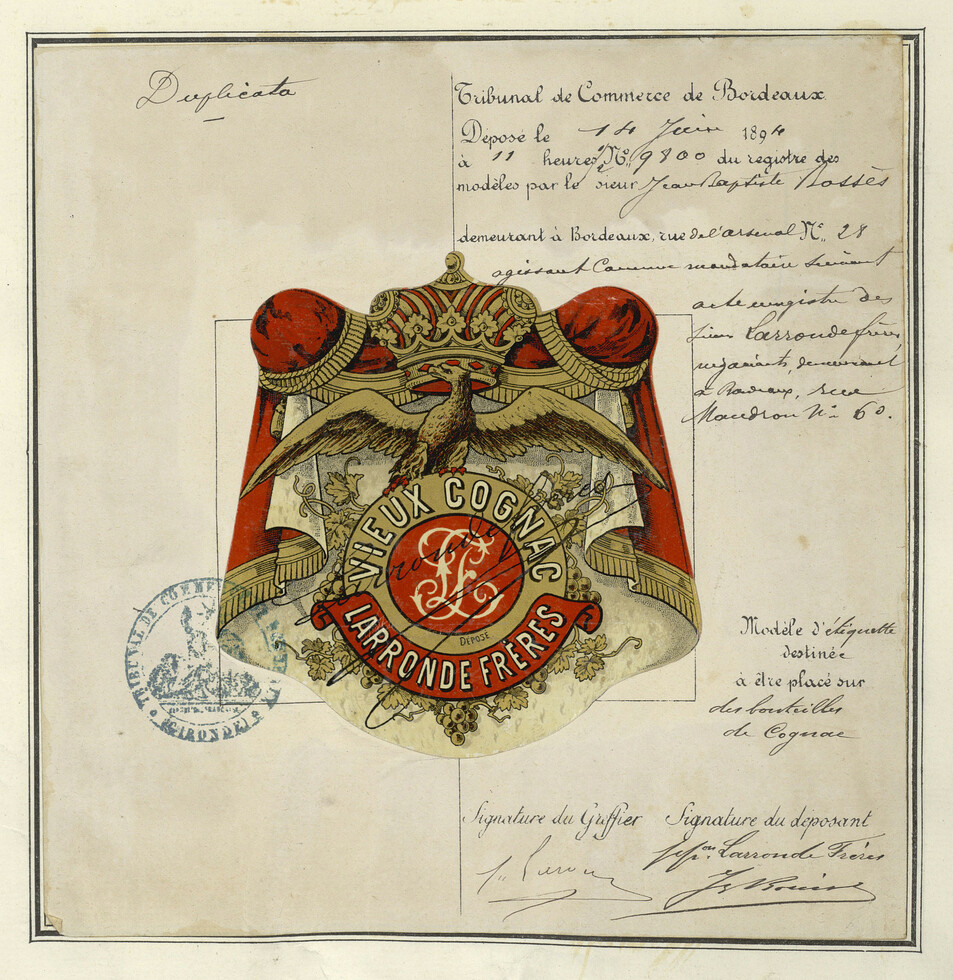 Duplicata
Tribunal de Commerce de Bordeaux
Déposé le 14 Juin 1894
à 11 heures N° 9800 du registre des
modèles par le sieur Jean Baptiste
demeurant à Bordeaux, rue de l'arsenal N° 28
agissant comme mandataire suivant
acte enregistré des
sieurs Larronde frères
négociants, demeurant
à Bordeaux, rue
Mandron N° 60.
VIEUX COGNAC
LF
DÉPOSÉ
LARRONDE FRÈRES
Larronde frères
TRIBUNAL DE COMMERCE
(GIRONDE)
Modèle d'étiquette
destinée
à être placé sur
des bouteilles
de Cognac
Signature du Greffier Signature du déposant
Larronde Frères